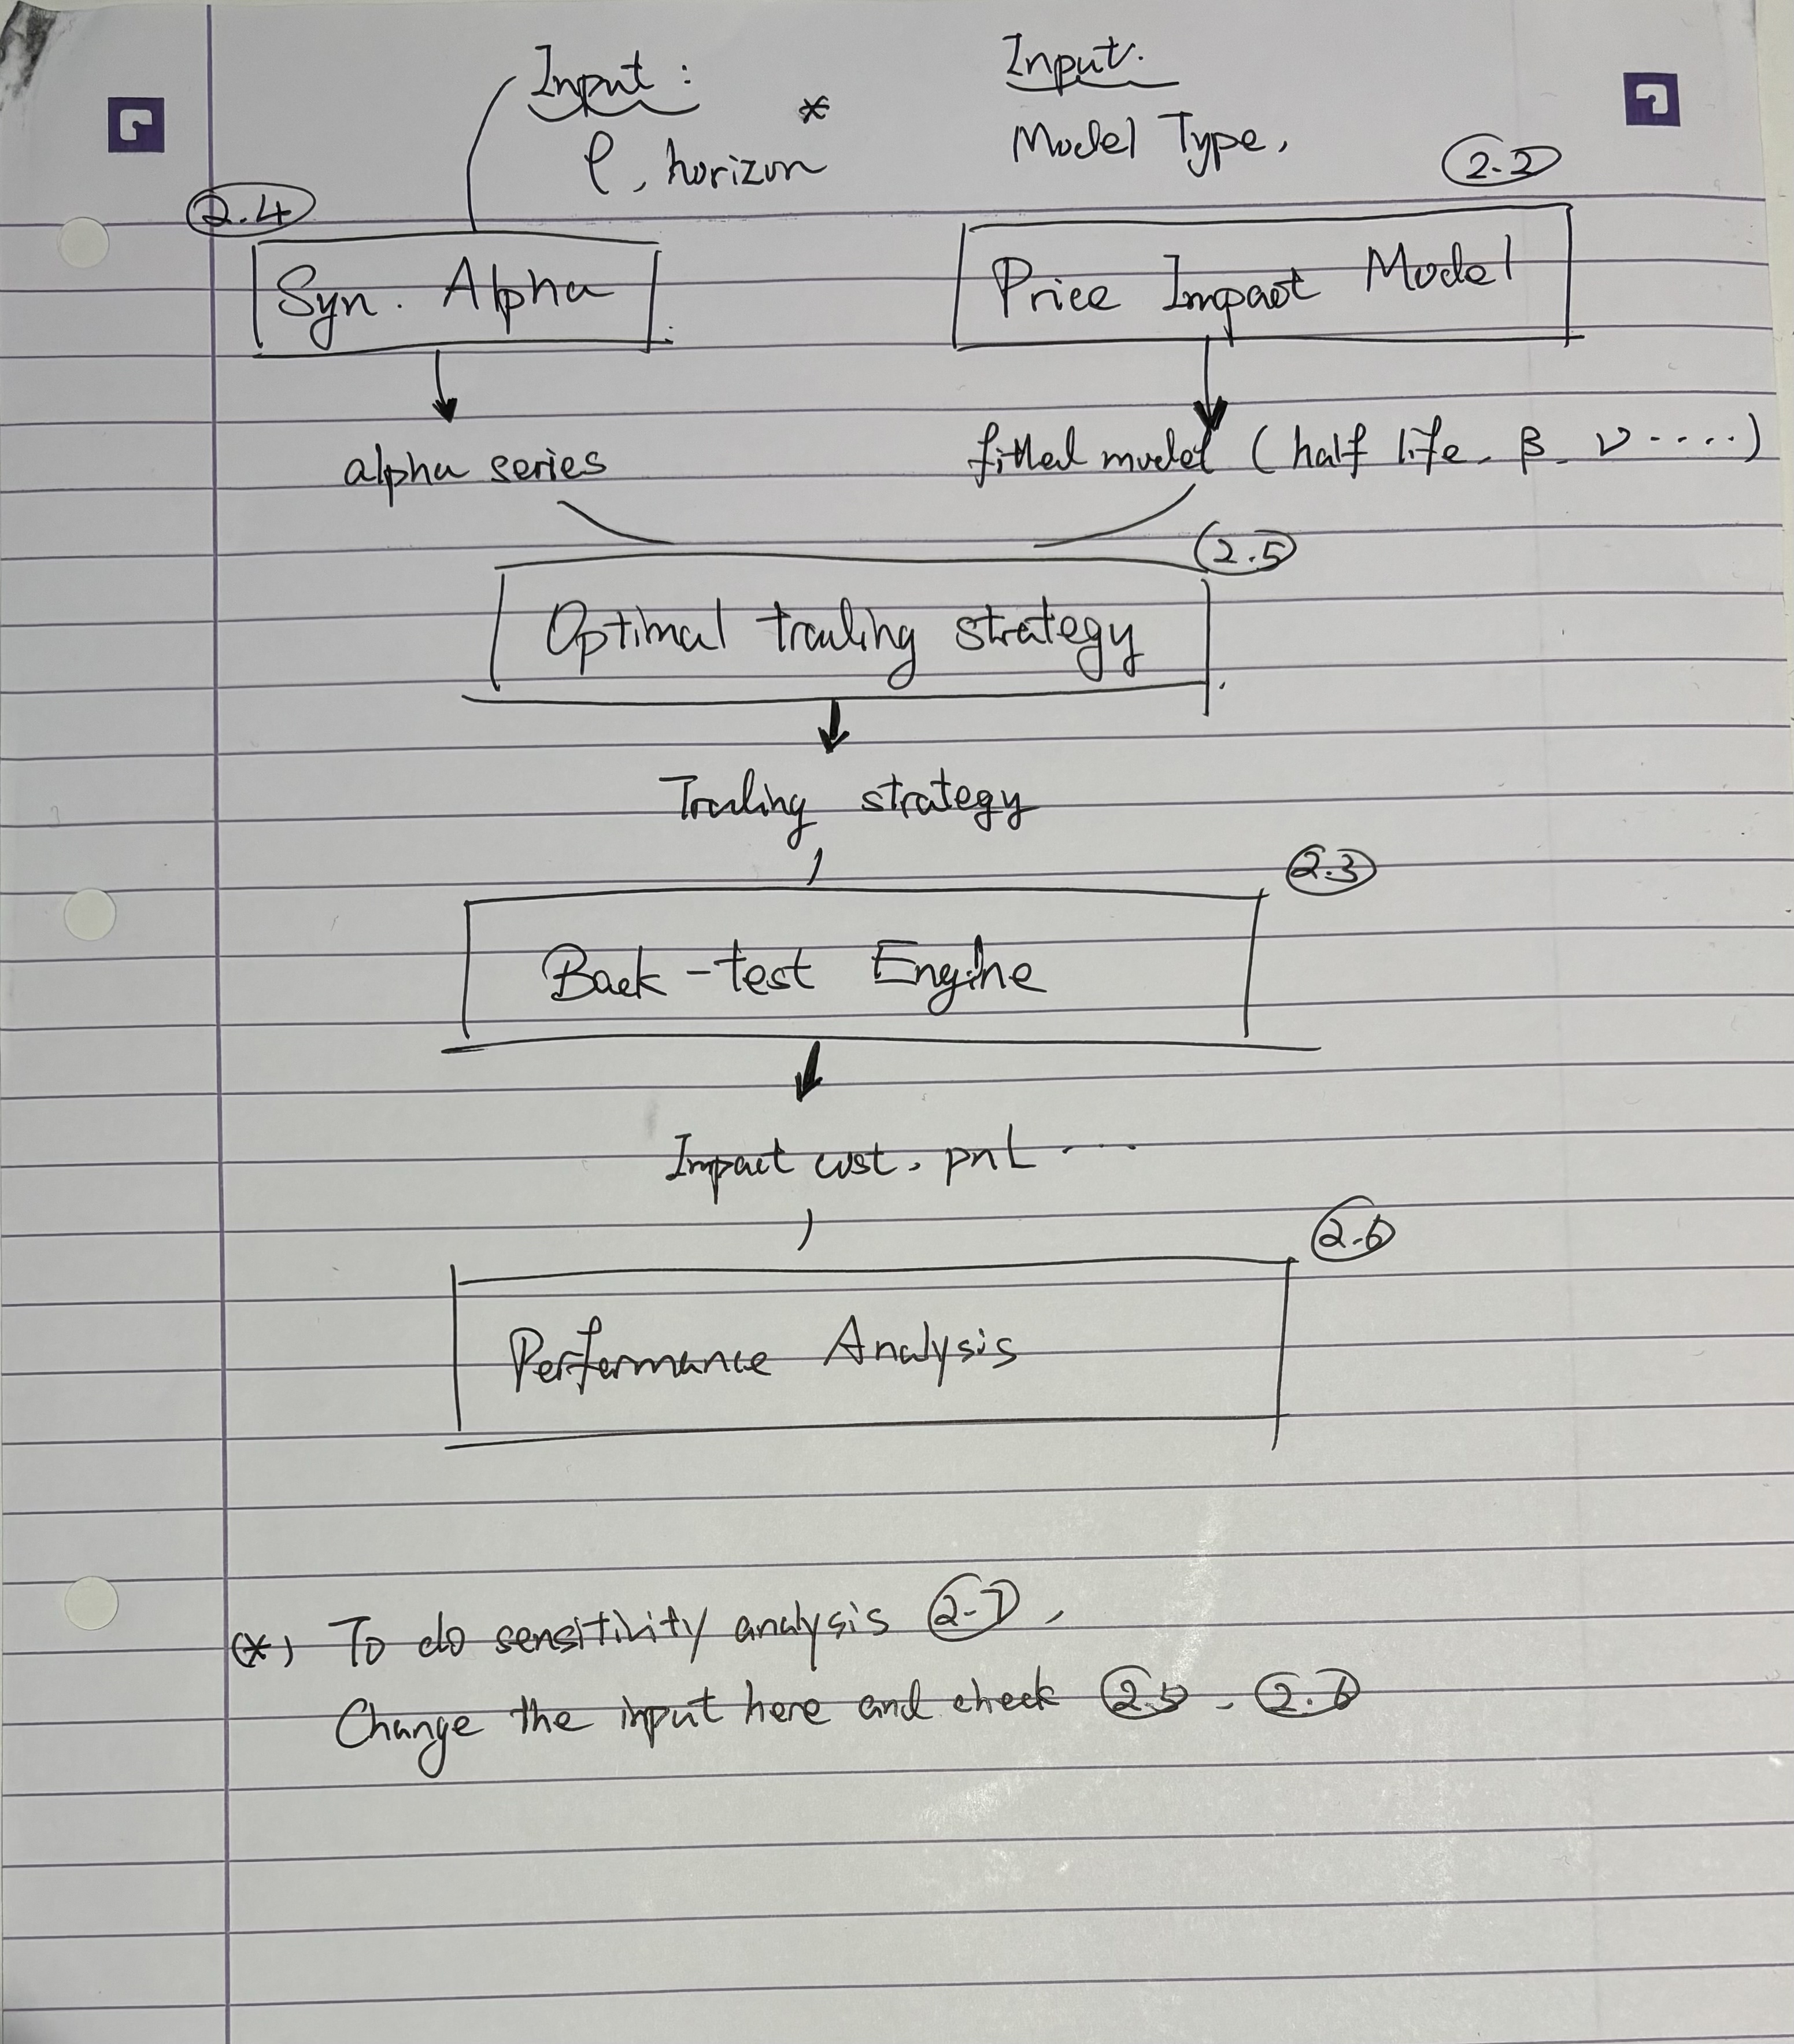 Input :
*
ρ, horizon
Input.
Model Type,
2.4
2.2
Syn. Alpha
Price Impact Model
alpha series
fitted model (half life, β, ν .....)
2.5
Optimal trading strategy
Trading strategy
2.3
Back-test Engine
Impact cost, pnL ....
2.6
Performance Analysis
(*) To do sensitivity analysis 2.7,
Change the input here and check 2.5, 2.6